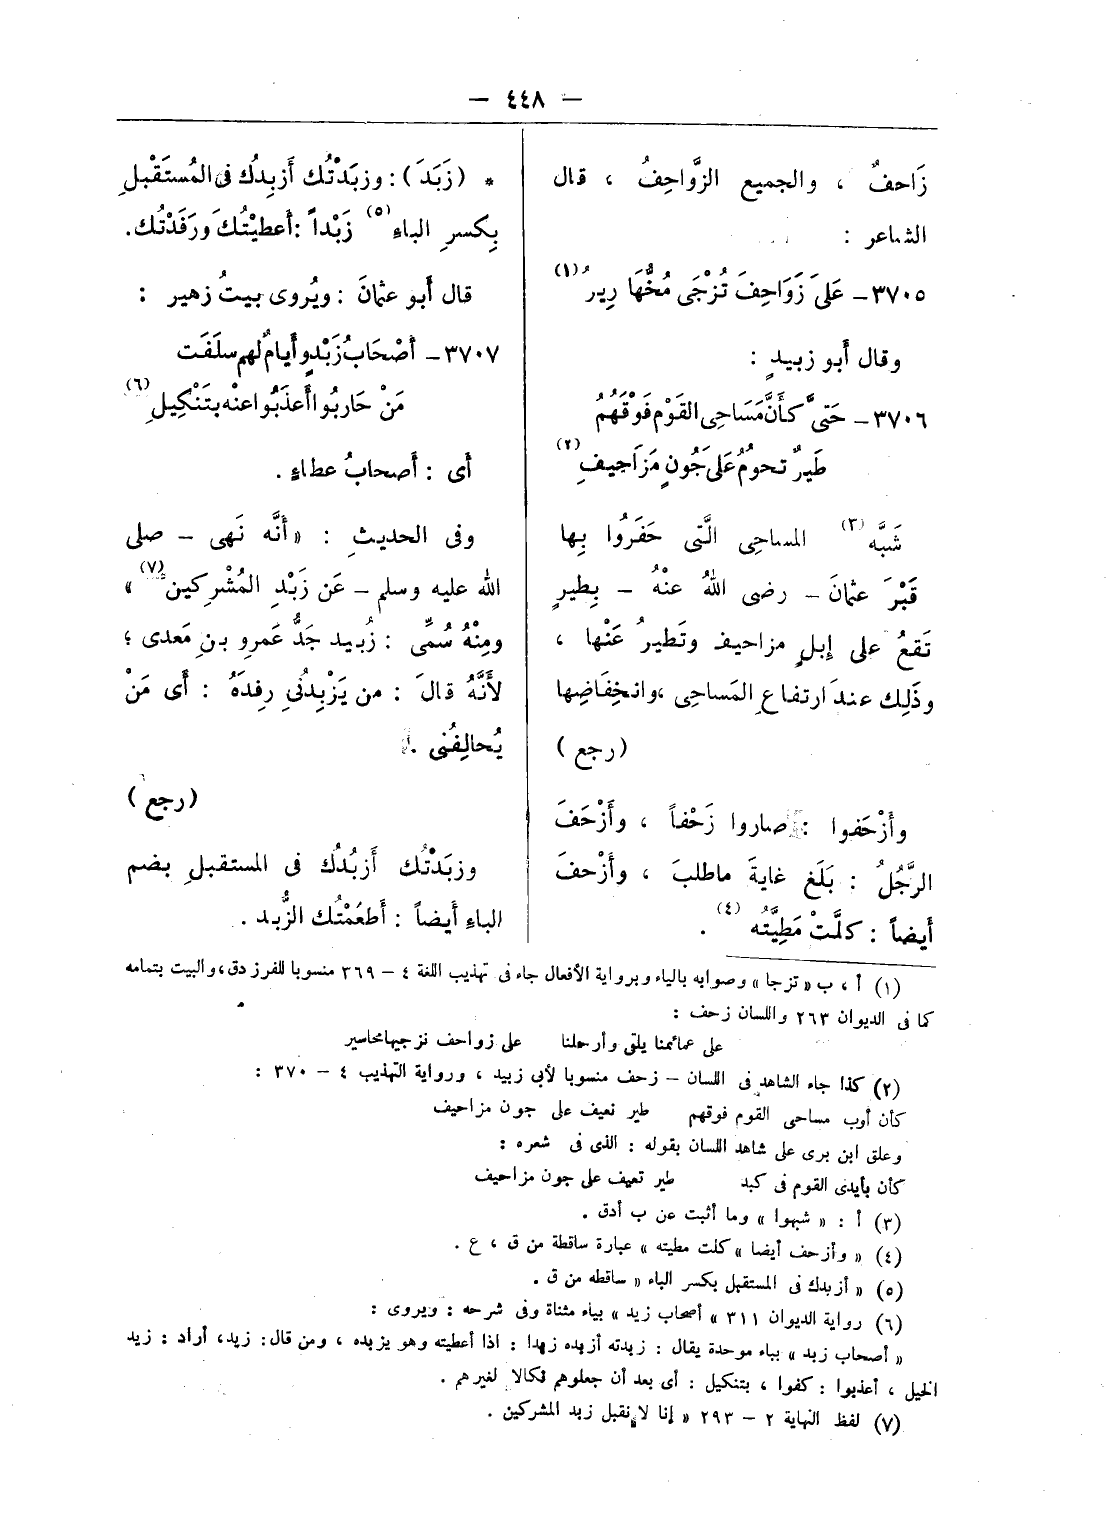 — ٤٤٨ —
زَاحفٌ ، والجميع الزَّواحِفُ ، قال
الشاعر :
٣٧٠٥ – عَلىَ زَوَاحِفَ تُزْجَى مُخُّهَا رِيرُ (١)
وقال أبو زبيدٍ :
٣٧٠٦ – حَتىَّ كأَنَّ مَسَاحِى القَوْمِ فَوْقَهُمُ
طَيرٌ تحومُ عَلَى جُونٍ مَزَاحِيفِ (٢)
شَبَّه (٣) المساحِى الَّتى حَفَرُوا بِها
قَبْرَ عثمانَ – رضى اللهُ عنْهُ – بِطيرٍ
تَقعُ على إبلٍ مزاحيف وتَطيرُ عَنْها ،
وذَلِك عندَ ارتفاعِ المَساحِى ، وانخِفَاضِها
(رجع)
وأَزْحَفوا : صاروا زَحْفاً ، وأَزْحَفَ
الرَّجُلُ : بَلَغ غايةَ ماطلبَ ، وأَزْحفَ
أيضاً : كلَّتْ مَطِيَّتُه (٤) .
* (زَبَدَ) : وزبَدْتُك أَزبِدُك فى المُستَقْبلِ
بِكسرِ الباءِ (٥) زَبْداً : أعطيْتُكَ ورَفَدْتُك.
قال أبو عثمانَ : ويُروى بيتُ زهير :
٣٧٠٧ – أصْحَابُ زَبْدٍ وأيامٌ لهم سلَفَت
مَنْ حَاربُوا أعذَبُوا عنْه بتَنْكِيلِ (٦)
أى : أصحابُ عطاءٍ .
وفى الحديثِ : « أنَّه نَهى – صلى
الله عليه وسلم – عَن زَبْدِ المُشْرِكين (٧) »
ومِنْهُ سُمِّى : زُبيد جَدُّ عَمرِو بنِ مَعدى ؛
لأنَّهُ قالَ : من يَزْبِدُنىِ رِفدَهُ : أى مَنْ
يُحالِفُنى .
(رجع)
وزبَدْتُك أزبُدُك فى المستقبلِ بضم
الباءِ أيضاً : أطعَمْتُك الزُّبد .
(١) أ ، ب « تزجا » وصوابه بالياء وبرواية الأفعال جاء فى تهذيب اللغة ٤ – ٣٦٩ منسوبا للفرزدق، والبيت بتمامه
كما فى الديوان ٢٦٣ واللسان زحف :
على عمائمنا يلقى وأرحلنا على زواحف نزجيها محاسير
(٢) كذا جاء الشاهد فى اللسان – زحف منسوبا لأبى زبيد ، ورواية التهذيب ٤ – ٣٧٠ :
كأن أوب مساحى القوم فوقهم طير تعيف على جون مزاحيف
وعلق ابن برى على شاهد اللسان بقوله : الذى فى شعره :
كأن بأيدى القوم فى كبد طير تعيف على جون مزاحيف
(٣) أ : « شبهوا » وما أثبت عن ب أدق .
(٤) « وأزحف أيضا » كلت مطيته » عبارة ساقطة من ق ، ع .
(٥) « أزبدك فى المستقبل بكسر الباء » ساقطه من ق .
(٦) رواية الديوان ٣١١ » أصحاب زيد » بياء مثناة وفى شرحه : ويروى :
« أصحاب زبد » بباء موحدة يقال : زبدته أزبده زبدا : اذا أعطيته وهو يزبده ، ومن قال: زيد، أراد : زيد
الخيل ، أعذبوا : كفوا ، بتنكيل : أى بعد أن جعلوهم نكالا لغيرهم .
(٧) لفظ النهاية ٢ – ٢٩٣ « إنا لا نقبل زبد المشركين .